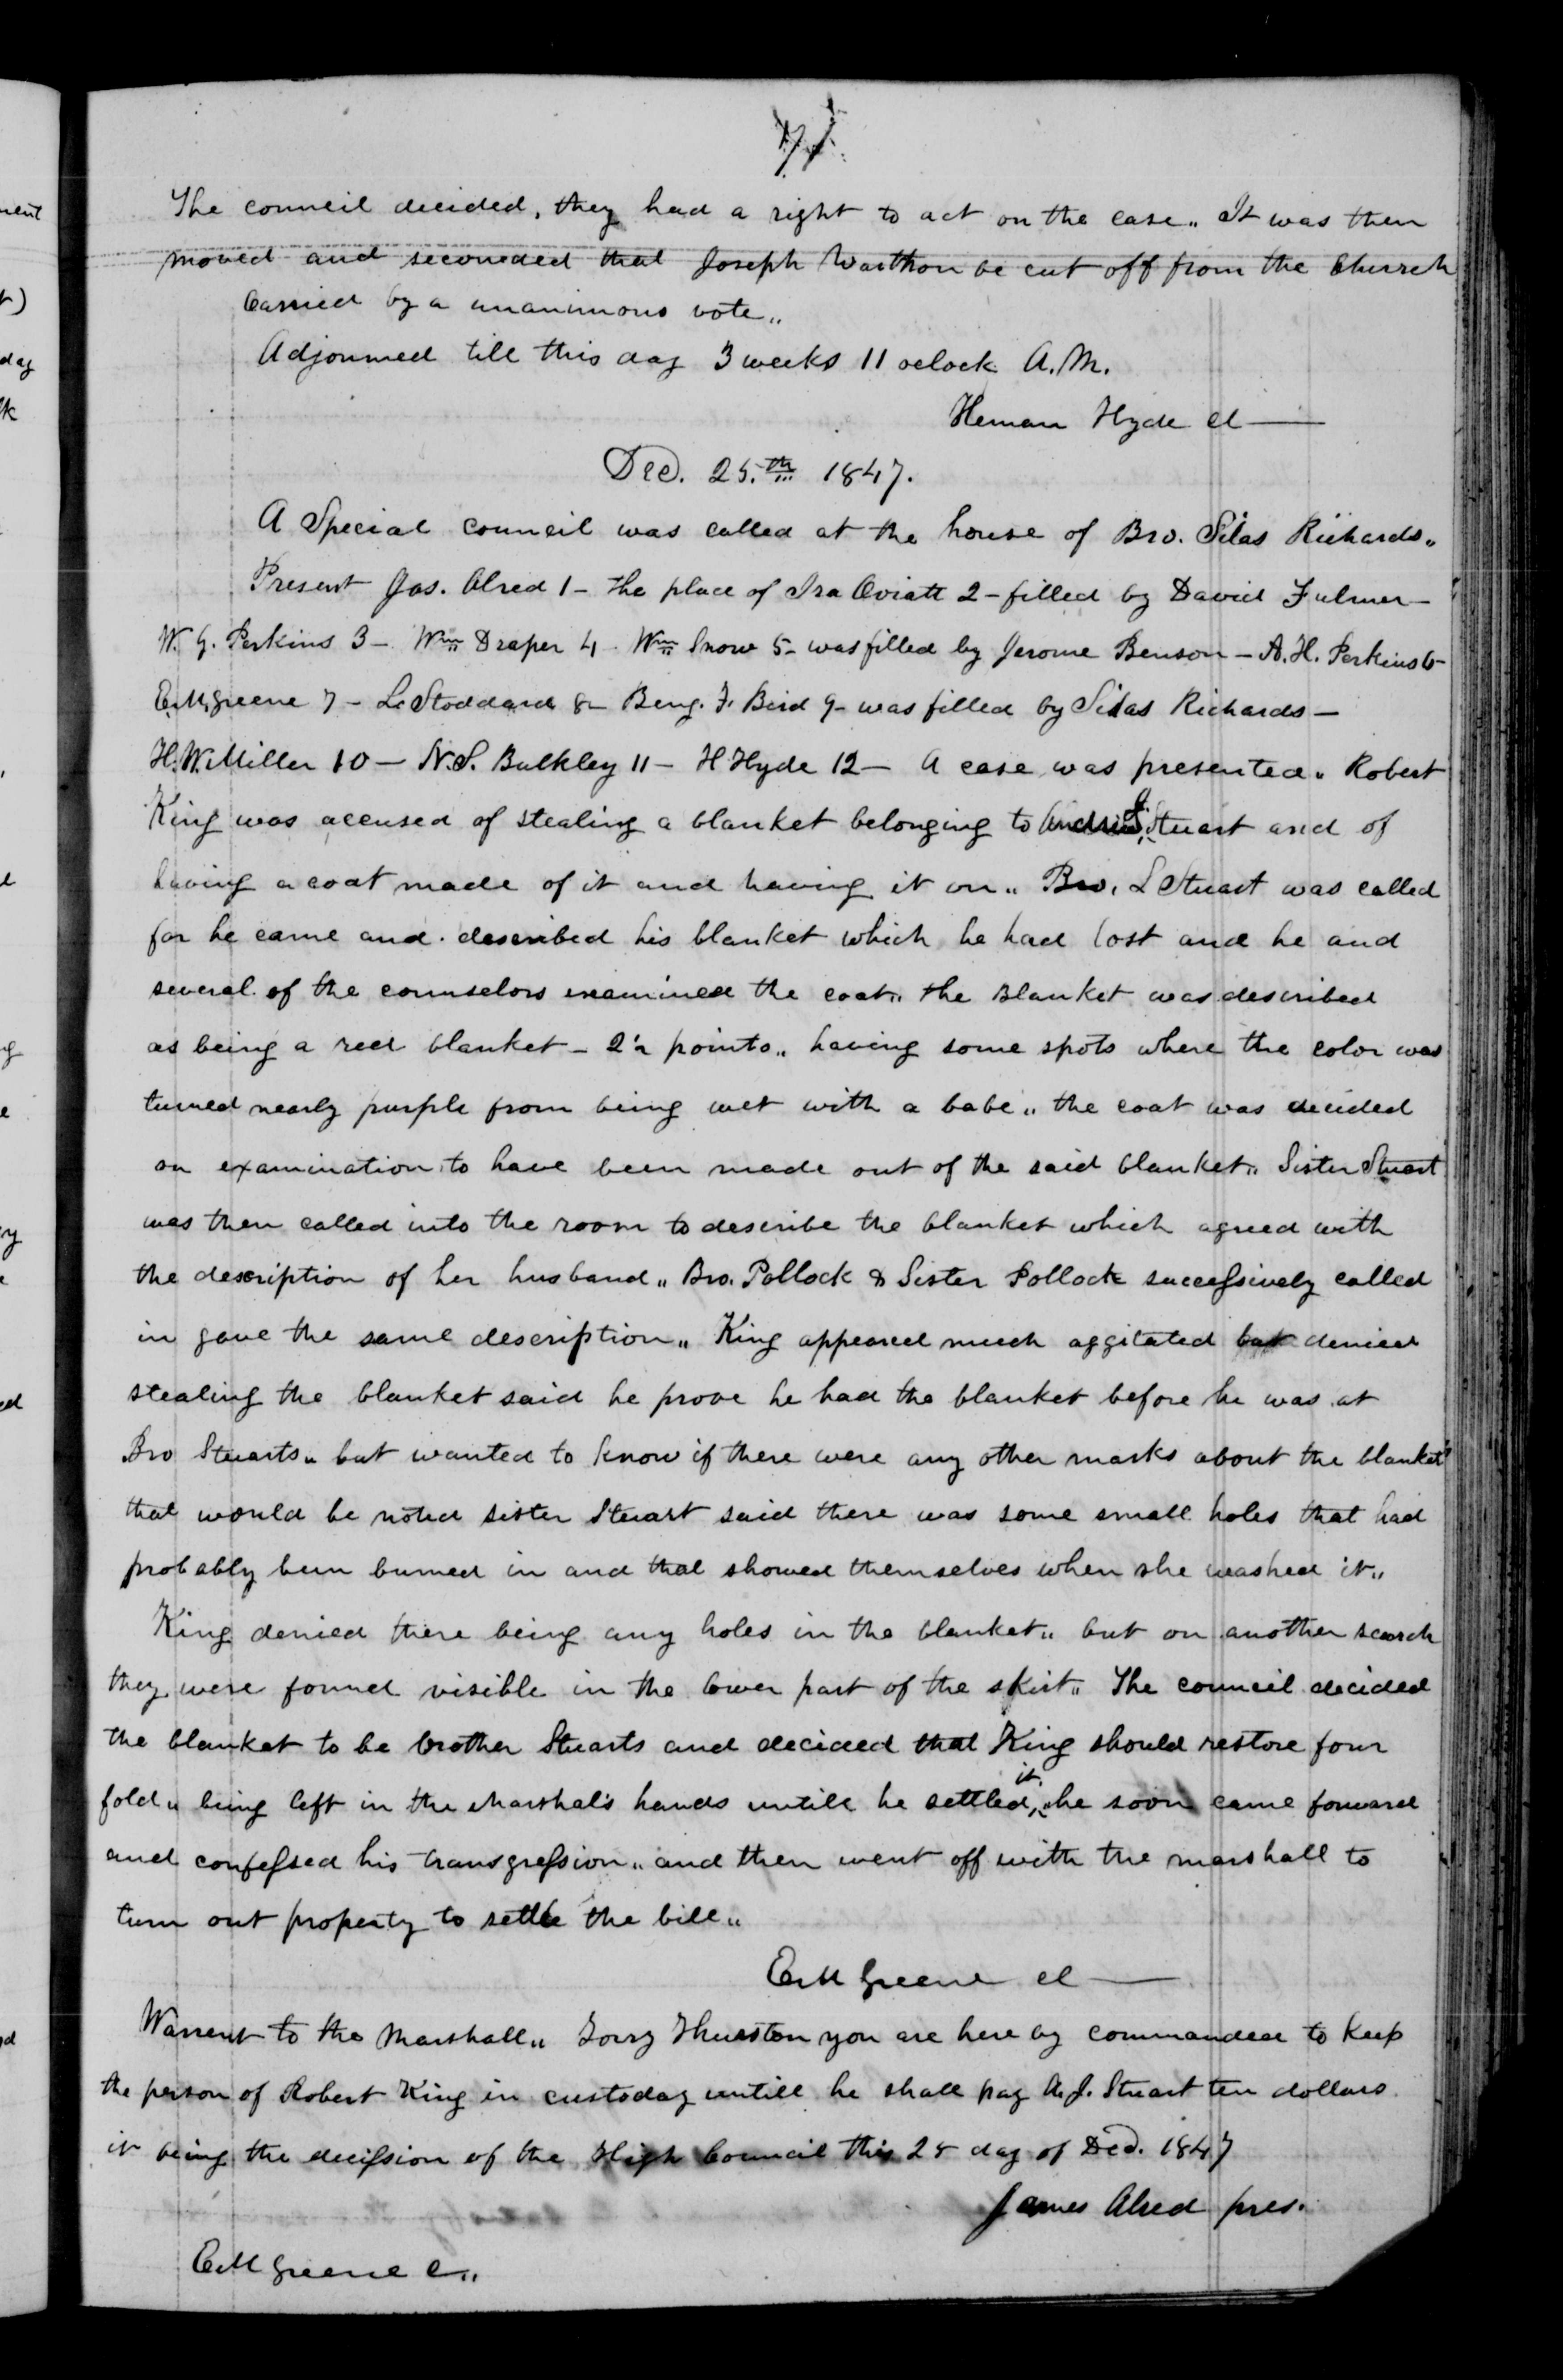 The council decided, they had a right to act on the case„ It was then
moved and seconeded that Joseph Warthon be cut off from the Church
Carried by a unanimous vote„
Adjourned till this day 3 weeks 11 oclock A.M.
Heman Hyde cl
Dec. 25.th 1847.
A Special council was called at the house of Bro. Silas Richards„
Present Jas. Alred 1 – the place of Ira Oviatt 2 – filled by David Fulmer –
W. G. Perkins 3 – Wm Draper 4 – Wm Snow 5 – was filled by Jerome Benson – A. H. Perkins 6 –
E.M. Greene 7 – L. Stoddard 8 – Benj. F. Bird 9 – was filled by Silas Richards –
H. W. Miller 10 – N. S. Bulkley 11 – H Hyde 12 – A case was presented„ Robert
King was accused of stealing a blanket belonging to J. Stuart and of
having a coat made of it and having it on„ Bro. Stuart was called
for he came and described his blanket which he had lost and he and
several of the counselors examined the coat„ the blanket was described
as being a red blanket – 2½ points„ having some spots where the color was
turned nearly purple from being wet with a babe„ the coat was decided
on examination to have been made out of the said blanket„ Sister Stuart
was then called into the room to describe the blanket which agreed with
the description of her husband„ Bro. Pollock & Sister Pollock successively called
in gave the same description„ King appeared much aggitated but denied
stealing the blanket said he prove he had the blanket before he was at
Bro Stuarts„ but wanted to know if there were any other marks about the blanket
that would be noted sister Stuart said there was some small holes that had
probably been burned in and that showed themselves when she washed it„
King denied there being any holes in the blanket„ but on another search
they were found visible in the lower part of the skirt„ The council decided
the blanket to be brother Stuarts and decided that King should restore four
fold„ being left in the Marshal's hands untill he settled it„ he soon came forward
and confessed his transgression„ and then went off with the marshall to
turn out property to settle the bill„
E M Greene cl
Warrent to the Marshall„ Thurston you are here by commanded to keep
the person of Robert King in custoday untill he shall pay A. J. Stuart ten dollars
it being the decission of the High Council this 25 day of Dec. 1847
James Alred pres.
E M Greene c„